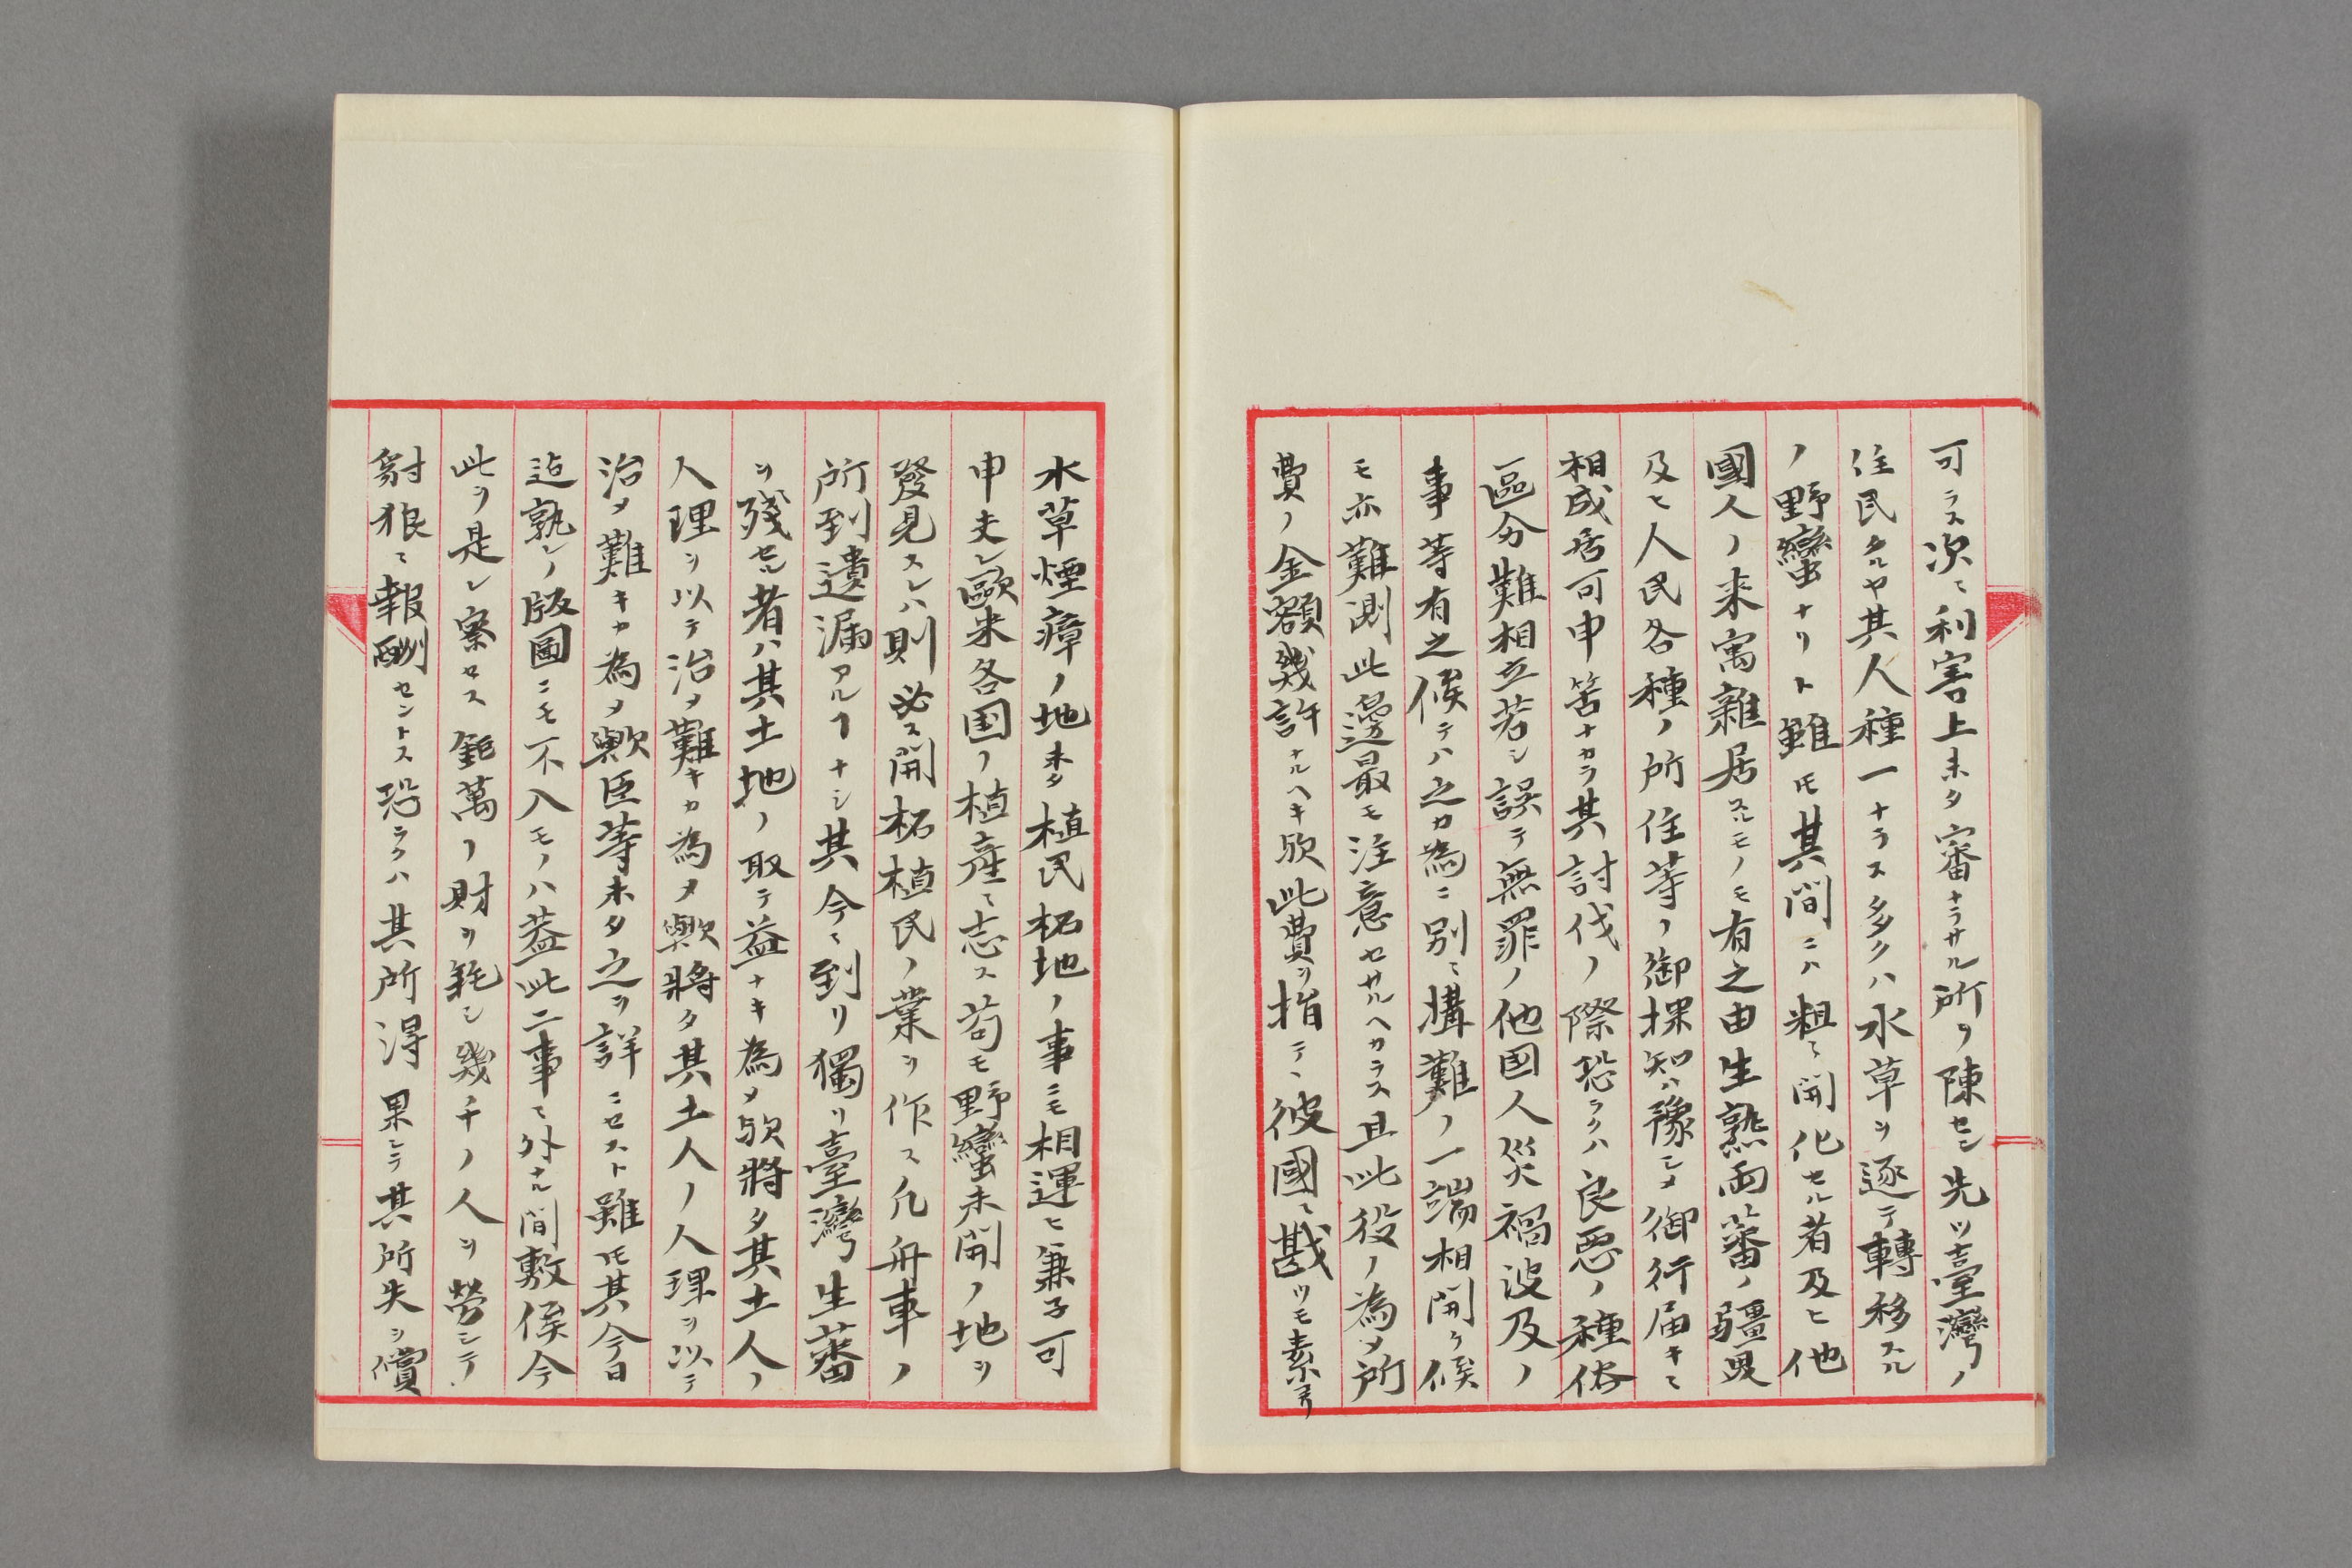 可ラス次ニ利害上未タ審ナラサル所ヲ陳セン先ツ臺灣ノ
住民タルヤ其人種一ナラス多クハ水草ヲ逐テ轉移スル
ノ野蠻ナリト雖𪜈其間ニハ粗ニ開化セル者及ヒ他
國人ノ来寓雜居スルモノモ有之由生熟両蕃ノ疆界
及ヒ人民各種ノ所住等ノ御探知ハ豫シメ御行届キニ
相成居可申筈ナカラ其討伐ノ際恐ラクハ良悪ノ種俗
區分難相立若シ誤テ無罪ノ他国人災禍波及ノ
事等有之候テハ之カ為ニ別ニ構難ノ一端相開ケ候
モ亦難測此邊最モ注意セサルヘカラス且此役ノ為メ所
費ノ金額幾許ナルヘキ歟此費ヲ指テ彼國ニ戡ツモ素ヨリ
水草煙瘴ノ地未タ植民柘地ノ事ニモ相運ヒ兼子可
申夫レ歐米各国ノ植産ニ志ス苟モ野蠻未開ノ地ヲ
發見スレハ則必ス開柘植民ノ業ヲ作ス凡舟車ノ
所到遺漏アルヿナシ其今ニ到リ獨リ臺灣生蕃
ヲ殘セル者ハ其土地ノ取テ益ナキ為メ歟將タ其土人ノ
人理ヲ以テ治メ難キカ為メ歟將タ其土人ノ人理ヲ以テ
治メ難キカ為メ歟臣等未タ之ヲ詳ニセスト雖𪜈其今日
迠孰レノ版圖ニモ不入モノハ葢此二事ニ外ナル間敷候今
此ヲ是レ察セス鉅萬ノ財ヲ耗シ幾千ノ人ヲ勞シテ
豺狼ニ報酬セントス恐ラクハ其所淂果シテ其所失ヲ償